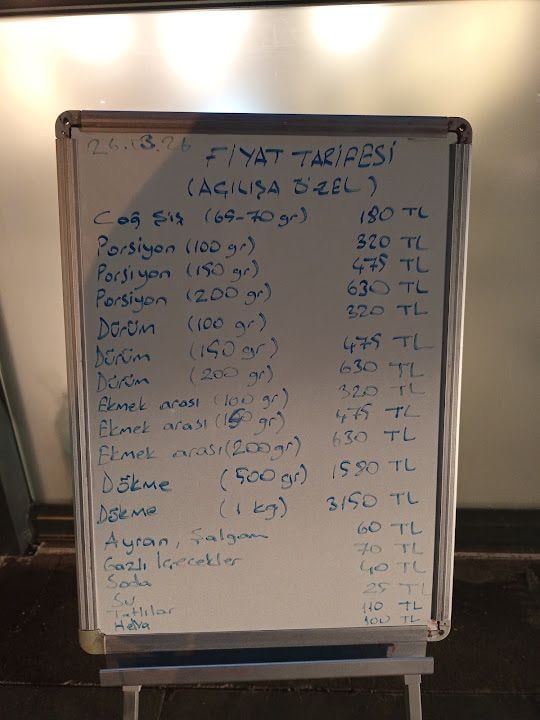 26.03.26
FİYAT TARİFESİ
(AÇILIŞA ÖZEL)
Coğ Şiş (65-70 gr) 180 TL
Porsiyon (100 gr) 320 TL
Porsiyon (150 gr) 475 TL
Porsiyon (200 gr) 630 TL
Dürüm (100 gr) 320 TL
Dürüm (150 gr) 475 TL
Dürüm (200 gr) 630 TL
Ekmek arası (100 gr) 320 TL
Ekmek arası (150 gr) 475 TL
Ekmek arası (200 gr) 630 TL
Dökme (500 gr) 1590 TL
Dökme (1 kg) 3150 TL
Ayran, Şalgam 60 TL
Gazlı İçecekler 70 TL
Soda 40 TL
Su 25 TL
Tatlılar 110 TL
Helva 100 TL